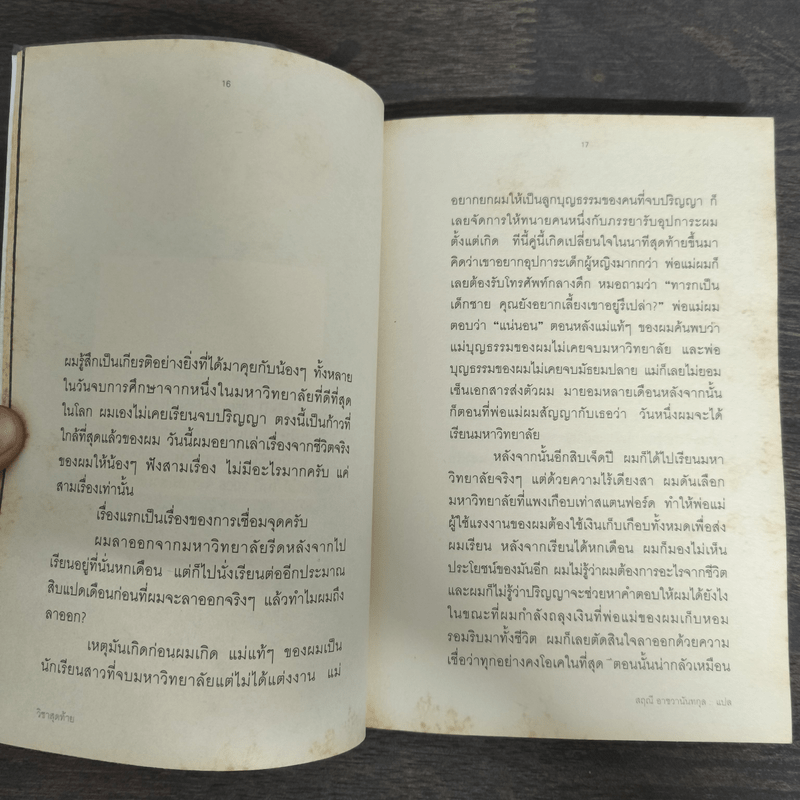 16
ผมรู้สึกเป็นเกียรติอย่างยิ่งที่ได้มาคุยกับน้องๆ ทั้งหลาย
ในวันจบการศึกษาจากหนึ่งในมหาวิทยาลัยที่ดีที่สุด
ในโลก ผมเองไม่เคยเรียนจบปริญญา ตรงนี้เป็นก้าวที่
ใกล้ที่สุดแล้วของผม วันนี้ผมอยากเล่าเรื่องจากชีวิตจริง
ของผมให้น้องๆ ฟังสามเรื่อง ไม่มีอะไรมากครับ แค่
สามเรื่องเท่านั้น
เรื่องแรกเป็นเรื่องของการเชื่อมจุดครับ
ผมลาออกจากมหาวิทยาลัยรีดหลังจากไป
เรียนอยู่ที่นั่นหกเดือน แต่ก็ไปนั่งเรียนต่ออีกประมาณ
สิบแปดเดือนก่อนที่ผมจะลาออกจริงๆ แล้วทำไมผมถึง
ลาออก?
เหตุมันเกิดก่อนผมเกิด แม่แท้ๆ ของผมเป็น
นักเรียนสาวที่จบมหาวิทยาลัยแต่ไม่ได้แต่งงาน แม่
วิชาสุดท้าย
17
อยากยกผมให้เป็นลูกบุญธรรมของคนที่จบปริญญา ก็
เลยจัดการให้ทนายคนหนึ่งกับภรรยารับอุปการะผม
ตั้งแต่เกิด ทีนี้คู่นี้เกิดเปลี่ยนใจในนาทีสุดท้ายขึ้นมา
คิดว่าเขาอยากอุปการะเด็กผู้หญิงมากกว่า พ่อแม่ผมก็
เลยต้องรับโทรศัพท์กลางดึก หมอถามว่า “ทารกเป็น
เด็กชาย คุณยังอยากเลี้ยงเขาอยู่รึเปล่า?” พ่อแม่ผม
ตอบว่า “แน่นอน” ตอนหลังแม่แท้ๆ ของผมค้นพบว่า
แม่บุญธรรมของผมไม่เคยจบมหาวิทยาลัย และพ่อ
บุญธรรมของผมไม่เคยจบมัธยมปลาย แม่ก็เลยไม่ยอม
เซ็นเอกสารส่งตัวผม มายอมหลายเดือนหลังจากนั้น
ก็ตอนที่พ่อแม่ผมสัญญากับเธอว่า วันหนึ่งผมจะได้
เรียนมหาวิทยาลัย
หลังจากนั้นอีกสิบเจ็ดปี ผมก็ได้ไปเรียนมหา
วิทยาลัยจริงๆ แต่ด้วยความไร้เดียงสา ผมดันเลือก
มหาวิทยาลัยที่แพงเกือบเท่าสแตนฟอร์ด ทำให้พ่อแม่
ผู้ใช้แรงงานของผมต้องใช้เงินเก็บเกือบทั้งหมดเพื่อส่ง
ผมเรียน หลังจากเรียนได้หกเดือน ผมก็มองไม่เห็น
ประโยชน์ของมันอีก ผมไม่รู้ว่าผมต้องการอะไรจากชีวิต
และผมก็ไม่รู้ว่าปริญญาจะช่วยหาคำตอบให้ผมได้ยังไง
ในขณะที่ผมกำลังถลุงเงินที่พ่อแม่ของผมเก็บหอม
รอมริบมาทั้งชีวิต ผมก็เลยตัดสินใจลาออกด้วยความ
เชื่อว่าทุกอย่างคงโอเคในที่สุด ตอนนั้นน่ากลัวเหมือน
สฤณี อาชวานันทกุล : แปล